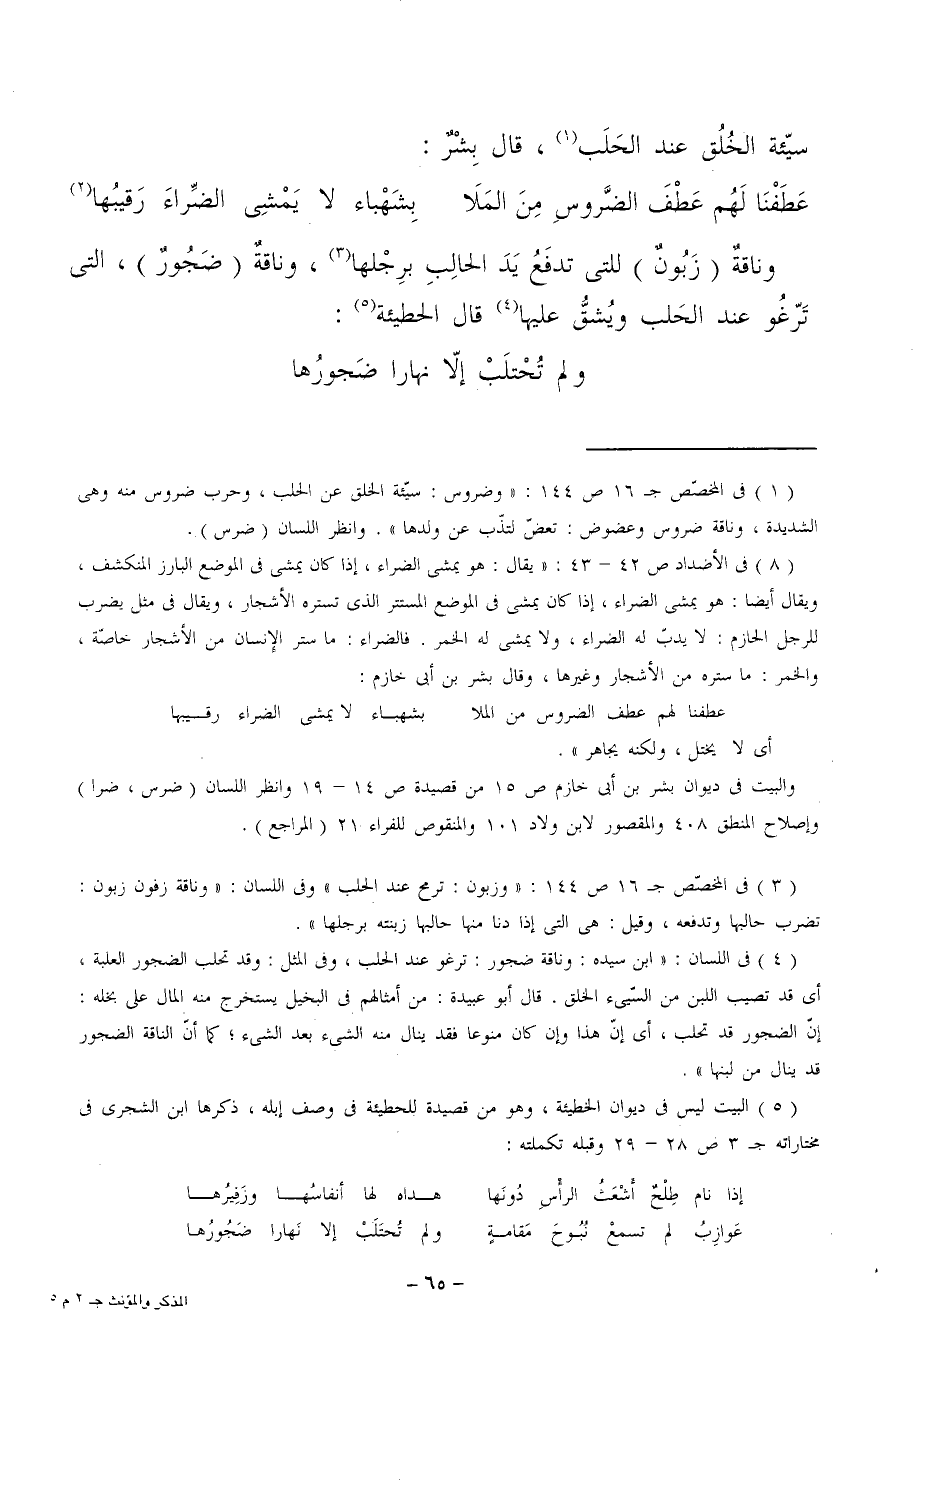 سيّئة الخُلُق عند الحَلَب(١) ، قال بِشْرٌ :
عَطَفْنَا لَهُم عَطْفَ الضَّروسِ مِنَ المَلَا بِشَهْباء لا يَمْشِى الضِّراءَ رَقيبُها(٢)
وناقةٌ ( زَبُونٌ ) للتى تدفَعُ يَدَ الحالِبِ بِرِجْلها(٣) ، وناقةٌ ( ضَجُورٌ ) ، التى
تَرْغُو عند الحَلب ويُشقُّ عليها(٤) قال الحطيئة(٥) :
ولم تُحْتلَبْ إلّا نهارا ضَجورُها
( ١ ) فى المخصّص جـ ١٦ ص ١٤٤ : « وضروس : سيّئة الخلق عن الحلب ، وحرب ضروس منه وهى
الشديدة ، وناقة ضروس وعضوض : تعضّ لتذّب عن ولدها » . وانظر اللسان ( ضرس ) .
( ٨ ) فى الأضداد ص ٤٢ – ٤٣ : « يقال : هو يمشى الضراء ، إذا كان يمشى فى الموضع البارز المنكشف ،
ويقال أيضا : هو يمشى الضراء ، إذا كان يمشى فى الموضع المستتر الذى تستره الأشجار ، ويقال فى مثل يضرب
للرجل الحازم : لا يدبّ له الضراء ، ولا يمشى له الخمر . فالضراء : ما ستر الإنسان من الأشجار خاصّة ،
والخمر : ما ستره من الأشجار وغيرها ، وقال بشر بن أبى خازم :
عطفنا لهم عطف الضروس من الملا بشهباء لا يمشى الضراء رقيبها
أى لا يختل ، ولكنه يجاهر » .
والبيت فى ديوان بشر بن أبى خازم ص ١٥ من قصيدة ص ١٤ – ١٩ وانظر اللسان ( ضرس ، ضرا )
وإصلاح المنطق ٤٠٨ والمقصور لابن ولاد ١٠١ والمنقوص للفراء ٢١ ( المراجع ) .
( ٣ ) فى المخصّص جـ ١٦ ص ١٤٤ : « وزبون : ترمح عند الحلب » وفى اللسان : « وناقة زفون زبون :
تضرب حالبها وتدفعه ، وقيل : هى التى إذا دنا منها حالبها زبنته برجلها » .
( ٤ ) فى اللسان : « ابن سيده : وناقة ضجور : ترغو عند الحلب ، وفى المثل : وقد تحلب الضجور العلبة ،
أى قد تصيب اللبن من السّيىء الخلق . قال أبو عبيدة : من أمثالهم فى البخيل يستخرج منه المال على بخله :
إنّ الضجور قد تحلب ، أى إنّ هذا وإن كان منوعا فقد ينال منه الشىء بعد الشىء ؛ كما أنّ الناقة الضجور
قد ينال من لبنها » .
( ٥ ) البيت ليس فى ديوان الحطيئة ، وهو من قصيدة للحطيئة فى وصف إبله ، ذكرها ابن الشجرى فى
مختاراته جـ ٣ ص ٢٨ – ٢٩ وقبله تكملته :
إذا نام طِلْحٌ أَشْعَثُ الرأْسِ دُونَها هـداه لها أنفاسُهـا وزَفِيرُهـا
عَوازِبُ لم تسمعْ نُبُوحَ مَقامةٍ ولم تُحتَلَبْ إلا نَهارا ضَجُورُهـا
– ٦٥ –
المذكر والمؤنث جـ ٢ م ٥